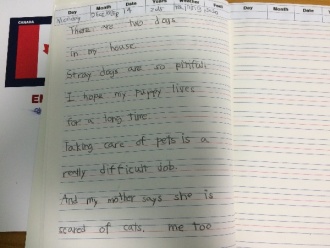 CANADA
Day Month Date Years Weather Feel
Monday
There are two dogs
in my house.
Stray dogs are so pitiful.
I hope my puppy lives
for a long time.
Taking care of pets is a
really difficult job.
And my mother says she is
scared of cats. me too